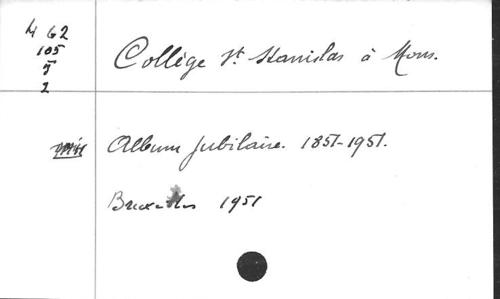 4 62
105
5
2
Collège St. Stanislas à Mons.
Album jubilaire. 1851-1951.
Bruxelles 1951